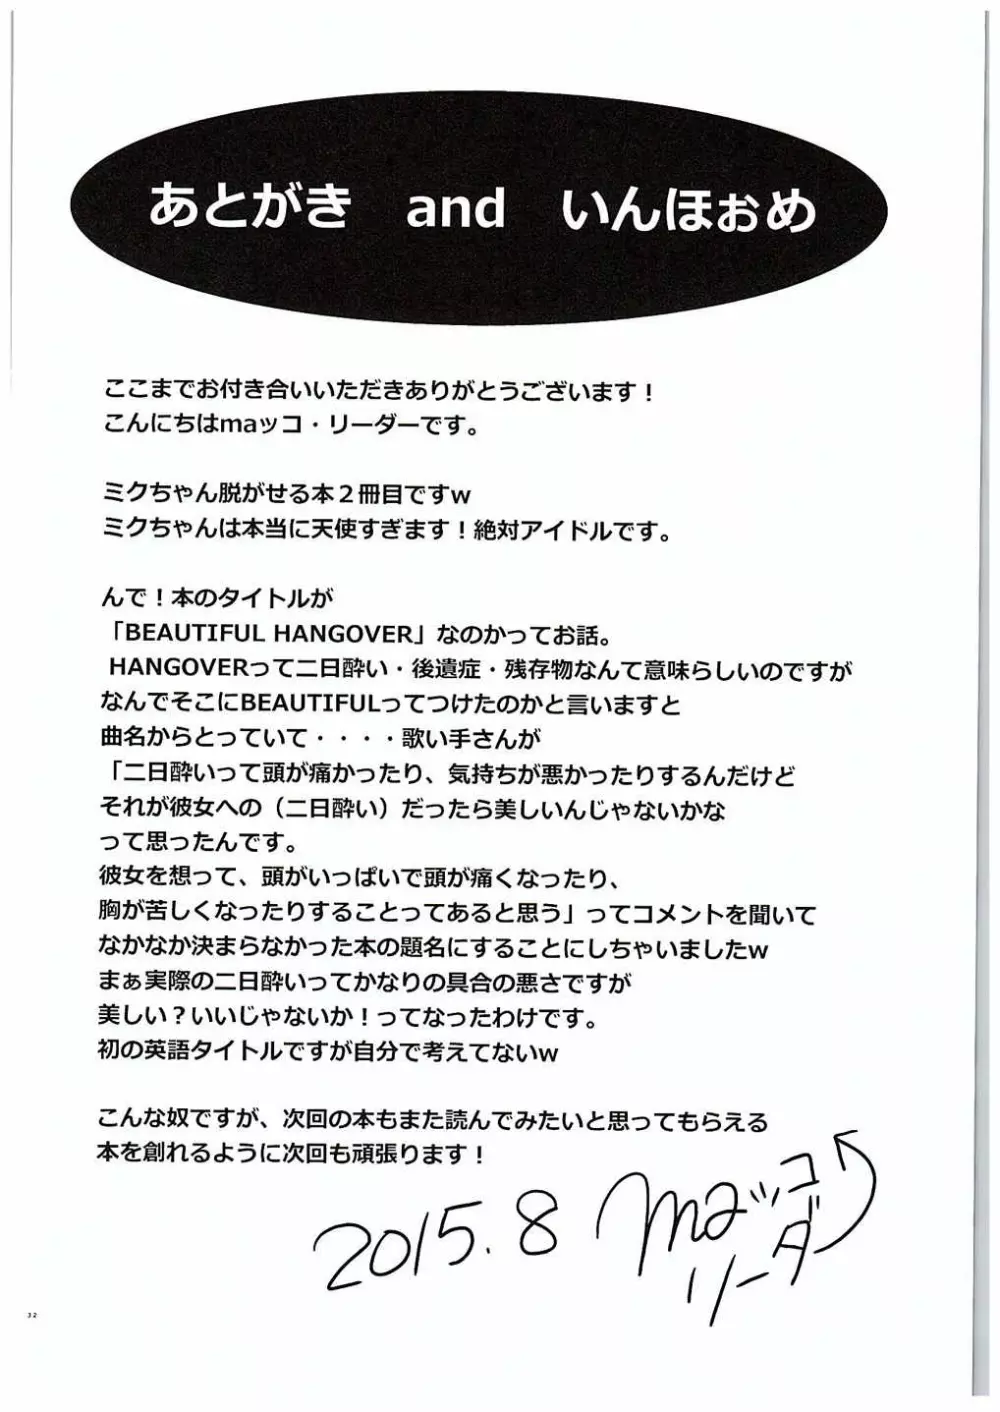 あとがき　and　いんほぉめ
ここまでお付き合いいただきありがとうございます！
こんにちはmaッコ・リーダーです。
ミクちゃん脱がせる本２冊目ですw
ミクちゃんは本当に天使すぎます！絶対アイドルです。
んで！本のタイトルが
「BEAUTIFUL HANGOVER」なのかってお話。
HANGOVERって二日酔い・後遺症・残存物なんて意味らしいのですが
なんでそこにBEAUTIFULってつけたのかと言いますと
曲名からとっていて・・・・歌い手さんが
「二日酔いって頭が痛かったり、気持ちが悪かったりするんだけど
それが彼女への（二日酔い）だったら美しいんじゃないかな
って思ったんです。
彼女を想って、頭がいっぱいで頭が痛くなったり、
胸が苦しくなったりすることってあると思う」ってコメントを聞いて
なかなか決まらなかった本の題名にすることにしちゃいましたw
まぁ実際の二日酔いってかなりの具合の悪さですが
美しい？いいじゃないか！ってなったわけです。
初の英語タイトルですが自分で考えてないw
こんな奴ですが、次回の本もまた読んでみたいと思ってもらえる
本を創れるように次回も頑張ります！
2015.8 maッコ
リーダー
32